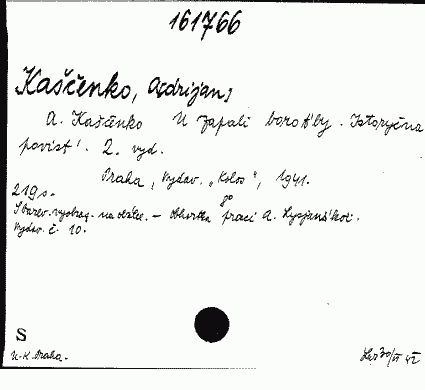 161766
Kaščenko, A[drijan]
A. Kaščenko U zapali borot'by. Istoryčna
povist'. 2. vyd.
Praha, Vydav. "Kolos", 1941.
219 s.
S barev. vyobraz. na obálce. — Obkortka praci A. Lysjans'koi.
Vydav. č. 10.
S
U.K. Praha.